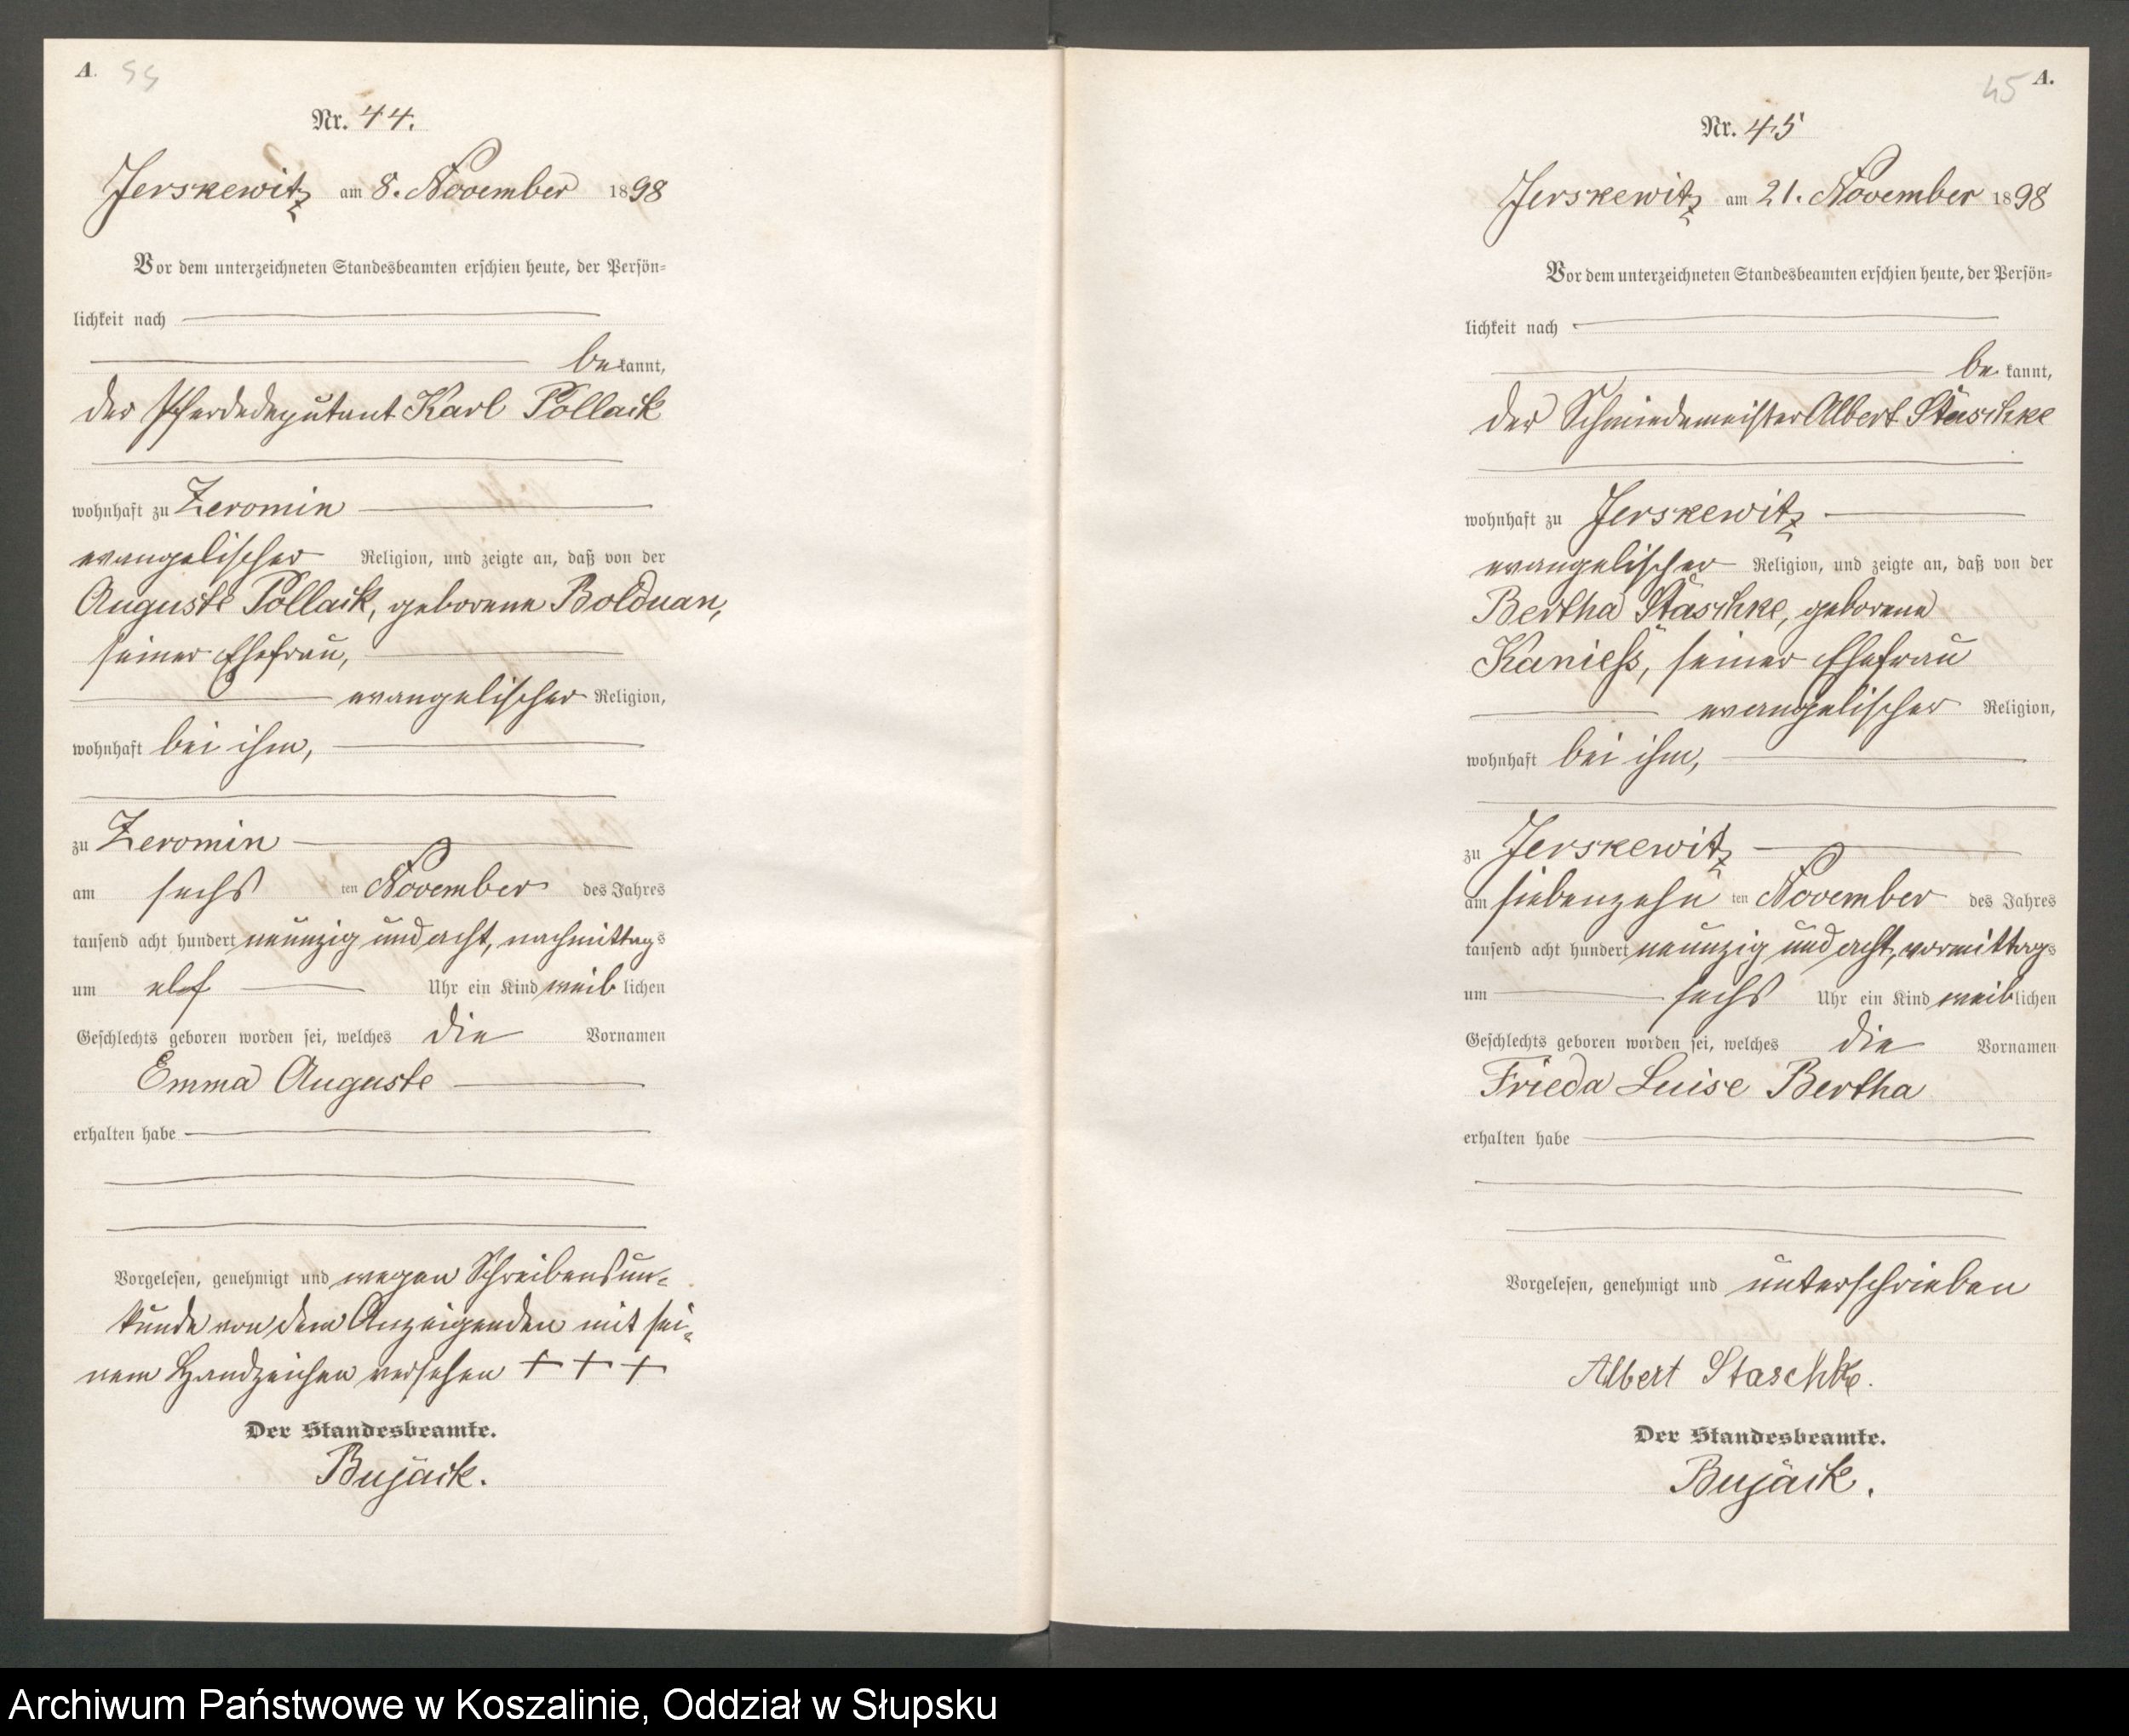 A. 44
Nr. 44.
Jerskewitz am 8. November 1898
Vor dem unterzeichneten Standesbeamten erschien heute, der Persön-
lichkeit nach
bekannt,
der Pferdedeputant Karl Pollack
wohnhaft zu Zeromin
evangelischer Religion, und zeigte an, daß von der
Auguste Pollack, geborene Bolduan,
seiner Ehefrau,
evangelischer Religion,
wohnhaft bei ihm,
zu Zeromin
am sechs ten November des Jahres
tausend acht hundert neunzig und acht, nachmittags
um elf Uhr ein Kind weiblichen
Geschlechts geboren worden sei, welches die Vornamen
Emma Auguste
erhalten habe
Vorgelesen, genehmigt und wegen Schreibensun-
kunde von dem Anzeigenden mit sei-
nem Handzeichen versehen + + +
Der Standesbeamte.
Bujack.
45 A.
Nr. 45
Jerskewitz am 21. November 1898
Vor dem unterzeichneten Standesbeamten erschien heute, der Persön-
lichkeit nach
bekannt,
der Schmiedemeister Albert Staschke
wohnhaft zu Jerskewitz
evangelischer Religion, und zeigte an, daß von der
Bertha Staschke, geborene
Kaniess, seiner Ehefrau
evangelischer Religion,
wohnhaft bei ihm,
zu Jerskewitz
am siebenzehn ten November des Jahres
tausend acht hundert neunzig und acht, vormittags
um sechs Uhr ein Kind weiblichen
Geschlechts geboren worden sei, welches die Vornamen
Frieda Luise Bertha
erhalten habe
Vorgelesen, genehmigt und unterschrieben
Albert Staschke.
Der Standesbeamte.
Bujack.
Archiwum Państwowe w Koszalinie, Oddział w Słupsku